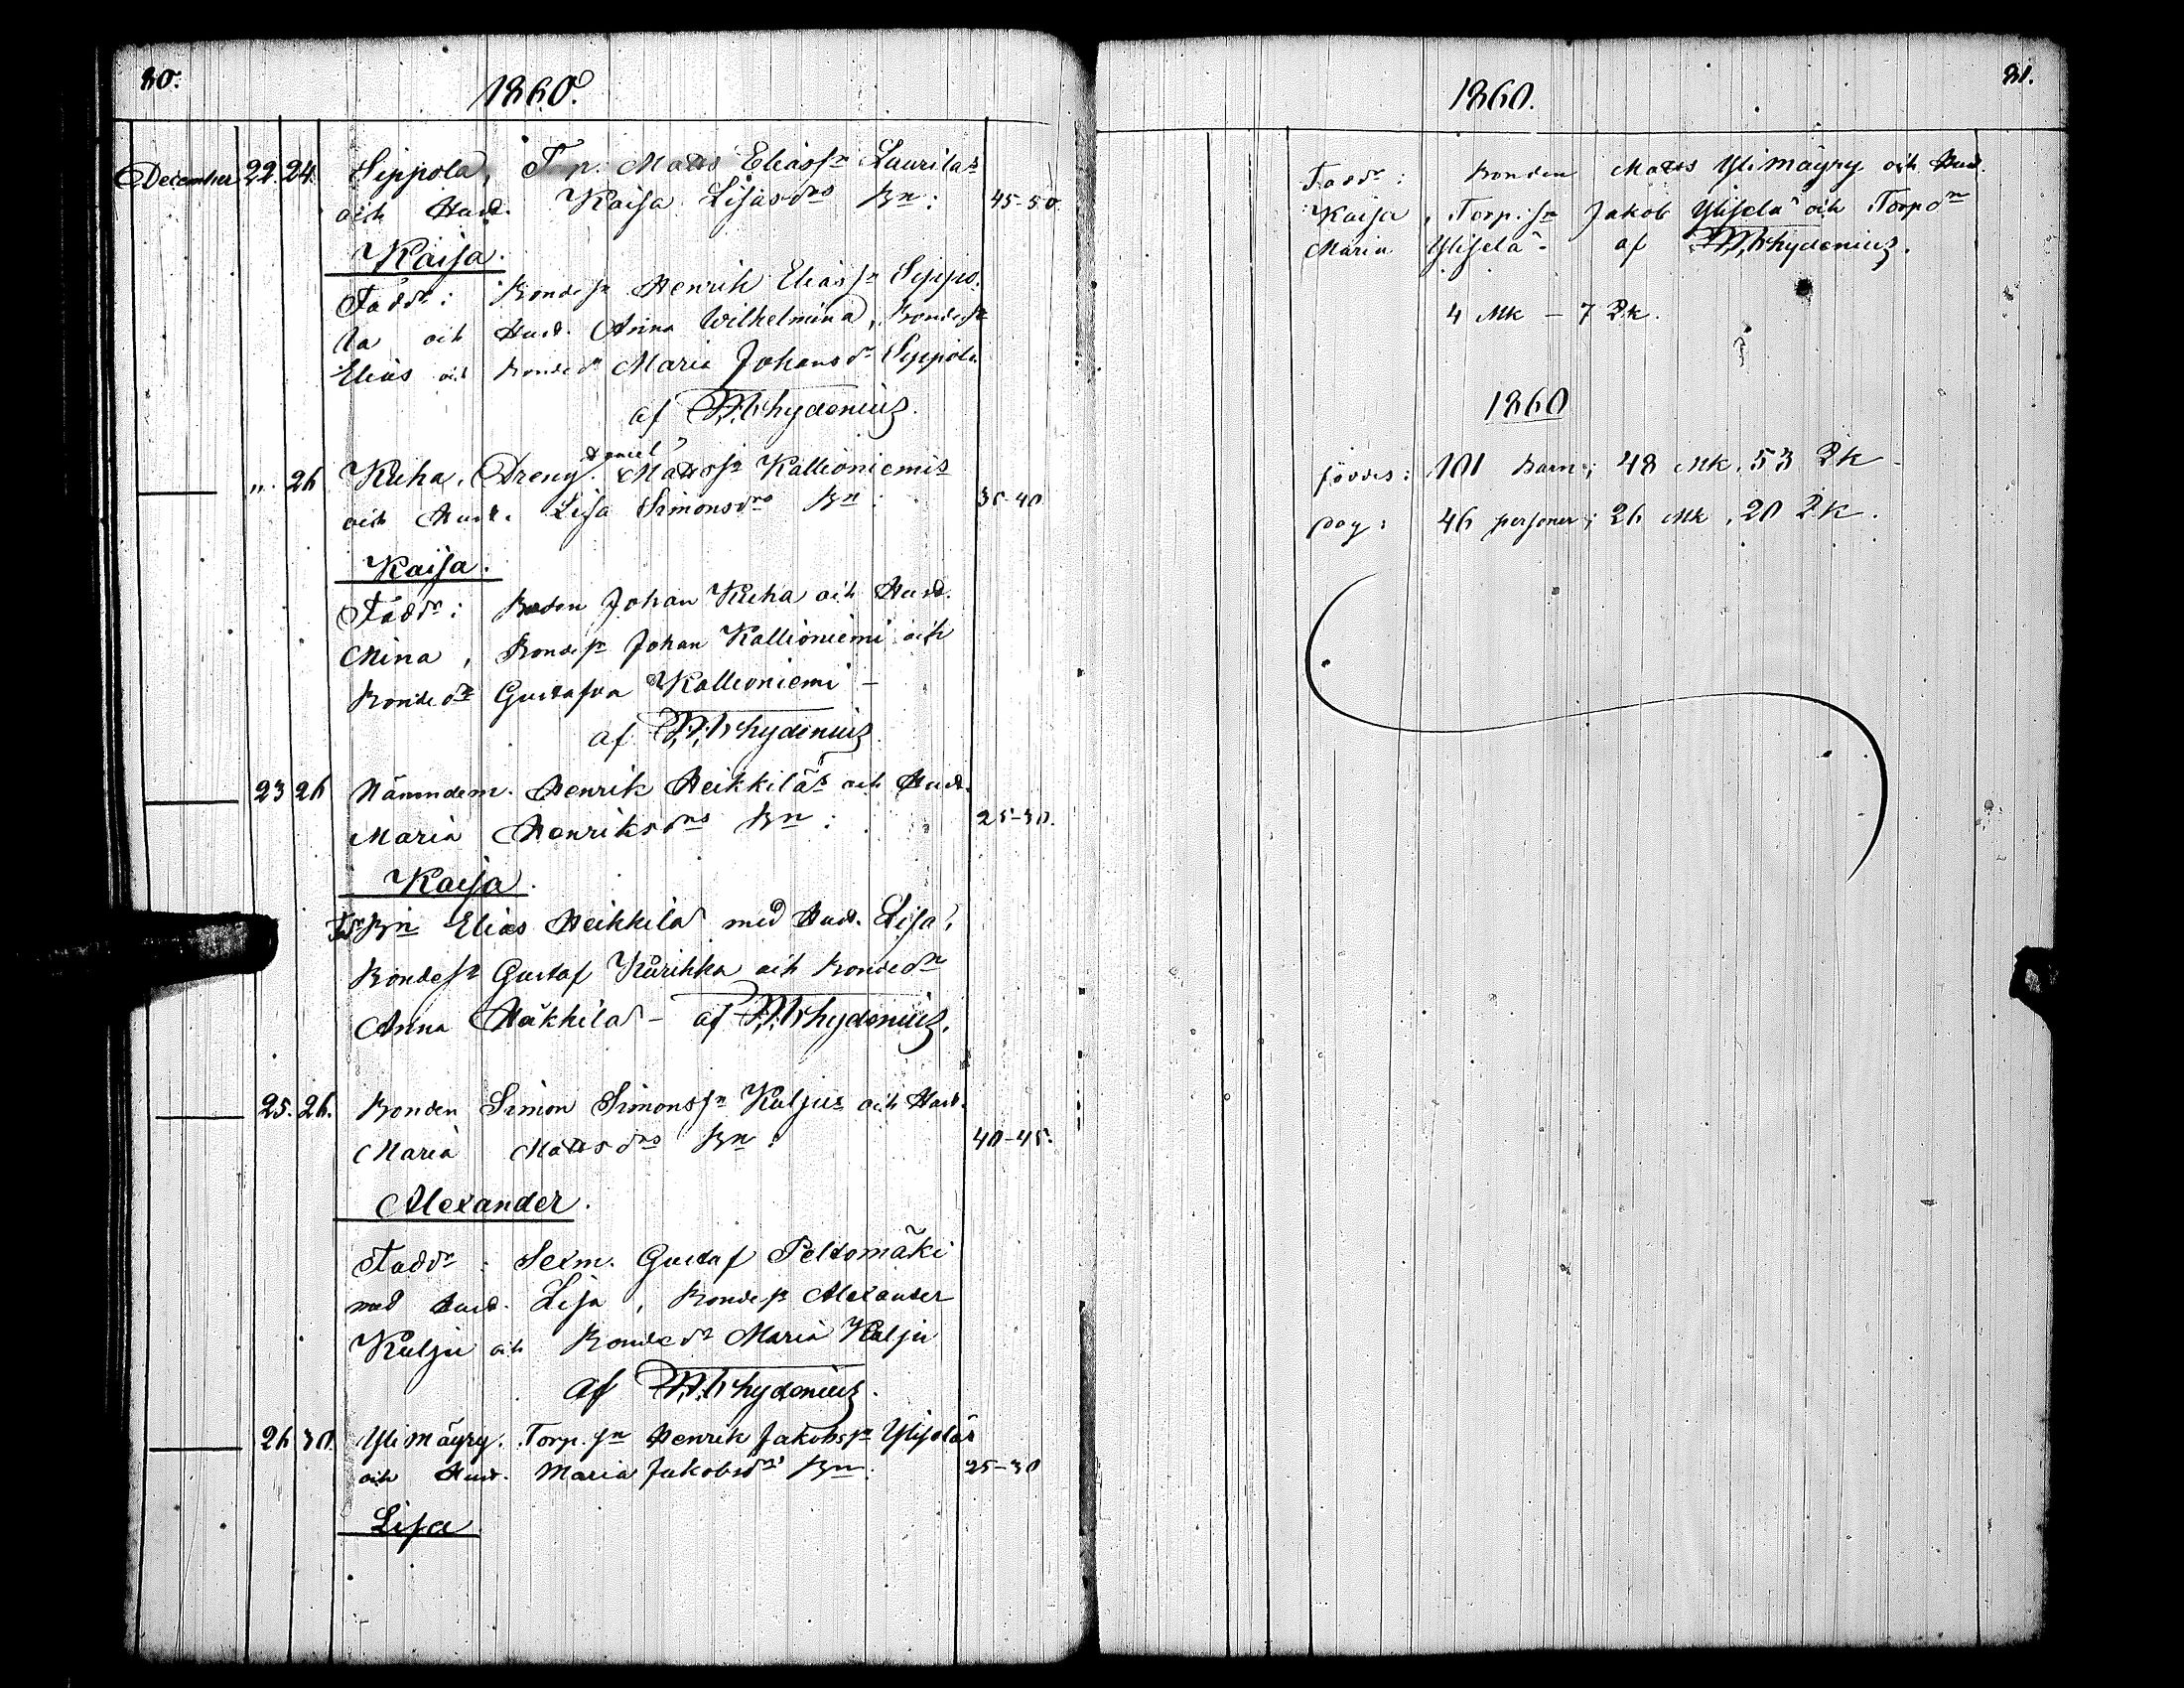 80.
1860.
December 22. 24. Seppola, Torp. Matts Eliass:n Laurilas
och Hust. Kaisa Lisasdrs Bn: 45-50.
Kaisa.
Faddr: Bondes:n Henrik Eliass:n Seppo-
la och Hust. Anna Wilhelmina, Bondes:n
Elias och Bonded:r Maria Johansdr Seppola
af W. W. Chydenius.
" 26 Kuha, Dreng. Daniel Mattss:n Kallioniemis
och Hust. Lisa Simonsdrs Bn: 35-40
Kaisa.
Faddr: Bonden Johan Kuha och Hust.
Mina, Bondes:n Johan Kallioniemi och
Bonded:r Gustafva Kallioniemi -
af Chydenius
23 26 Nämndem. Henrik Heikkiläs och Hust.
Maria Henriksdrs Bn: 25-30.
Kaisa.
Fdr Bn Elias Heikkilä med Hust. Lisa,
Bondes:n Gustaf Kurikka och Bonded:r
Anna Heikkilä - af Chydenius.
25. 26. Bonden Simon Simonss:n Kuljus och Hust.
Maria Mattsdrs Bn: 40-45.
Alexander.
Faddr: Sexm. Gustaf Peltomäki
med Hust. Lisa, Bondes:n Alexander
Kulju och Bonded:r Maria Kulju
af Chydenius.
26 30 Ylimäyry. Torp. s:n Henrik Jakobss:n Yliseläs
och Hust. Maria Jakobsdrs Bn: 25-30
Lisa
81.
1860.
Faddr: Bonden Matts Ylimäyry och Hust.
Kaisa, Torp. s:n Jakob Yliselä och Torp d:r
Maria Yliselä - af Chydenius.
4 Mk - 7 Qk.
1860
föddes: 101 barn; 48 Mk, 53 Qk -
dog: 46 personer; 26 Mk, 20 Qk.